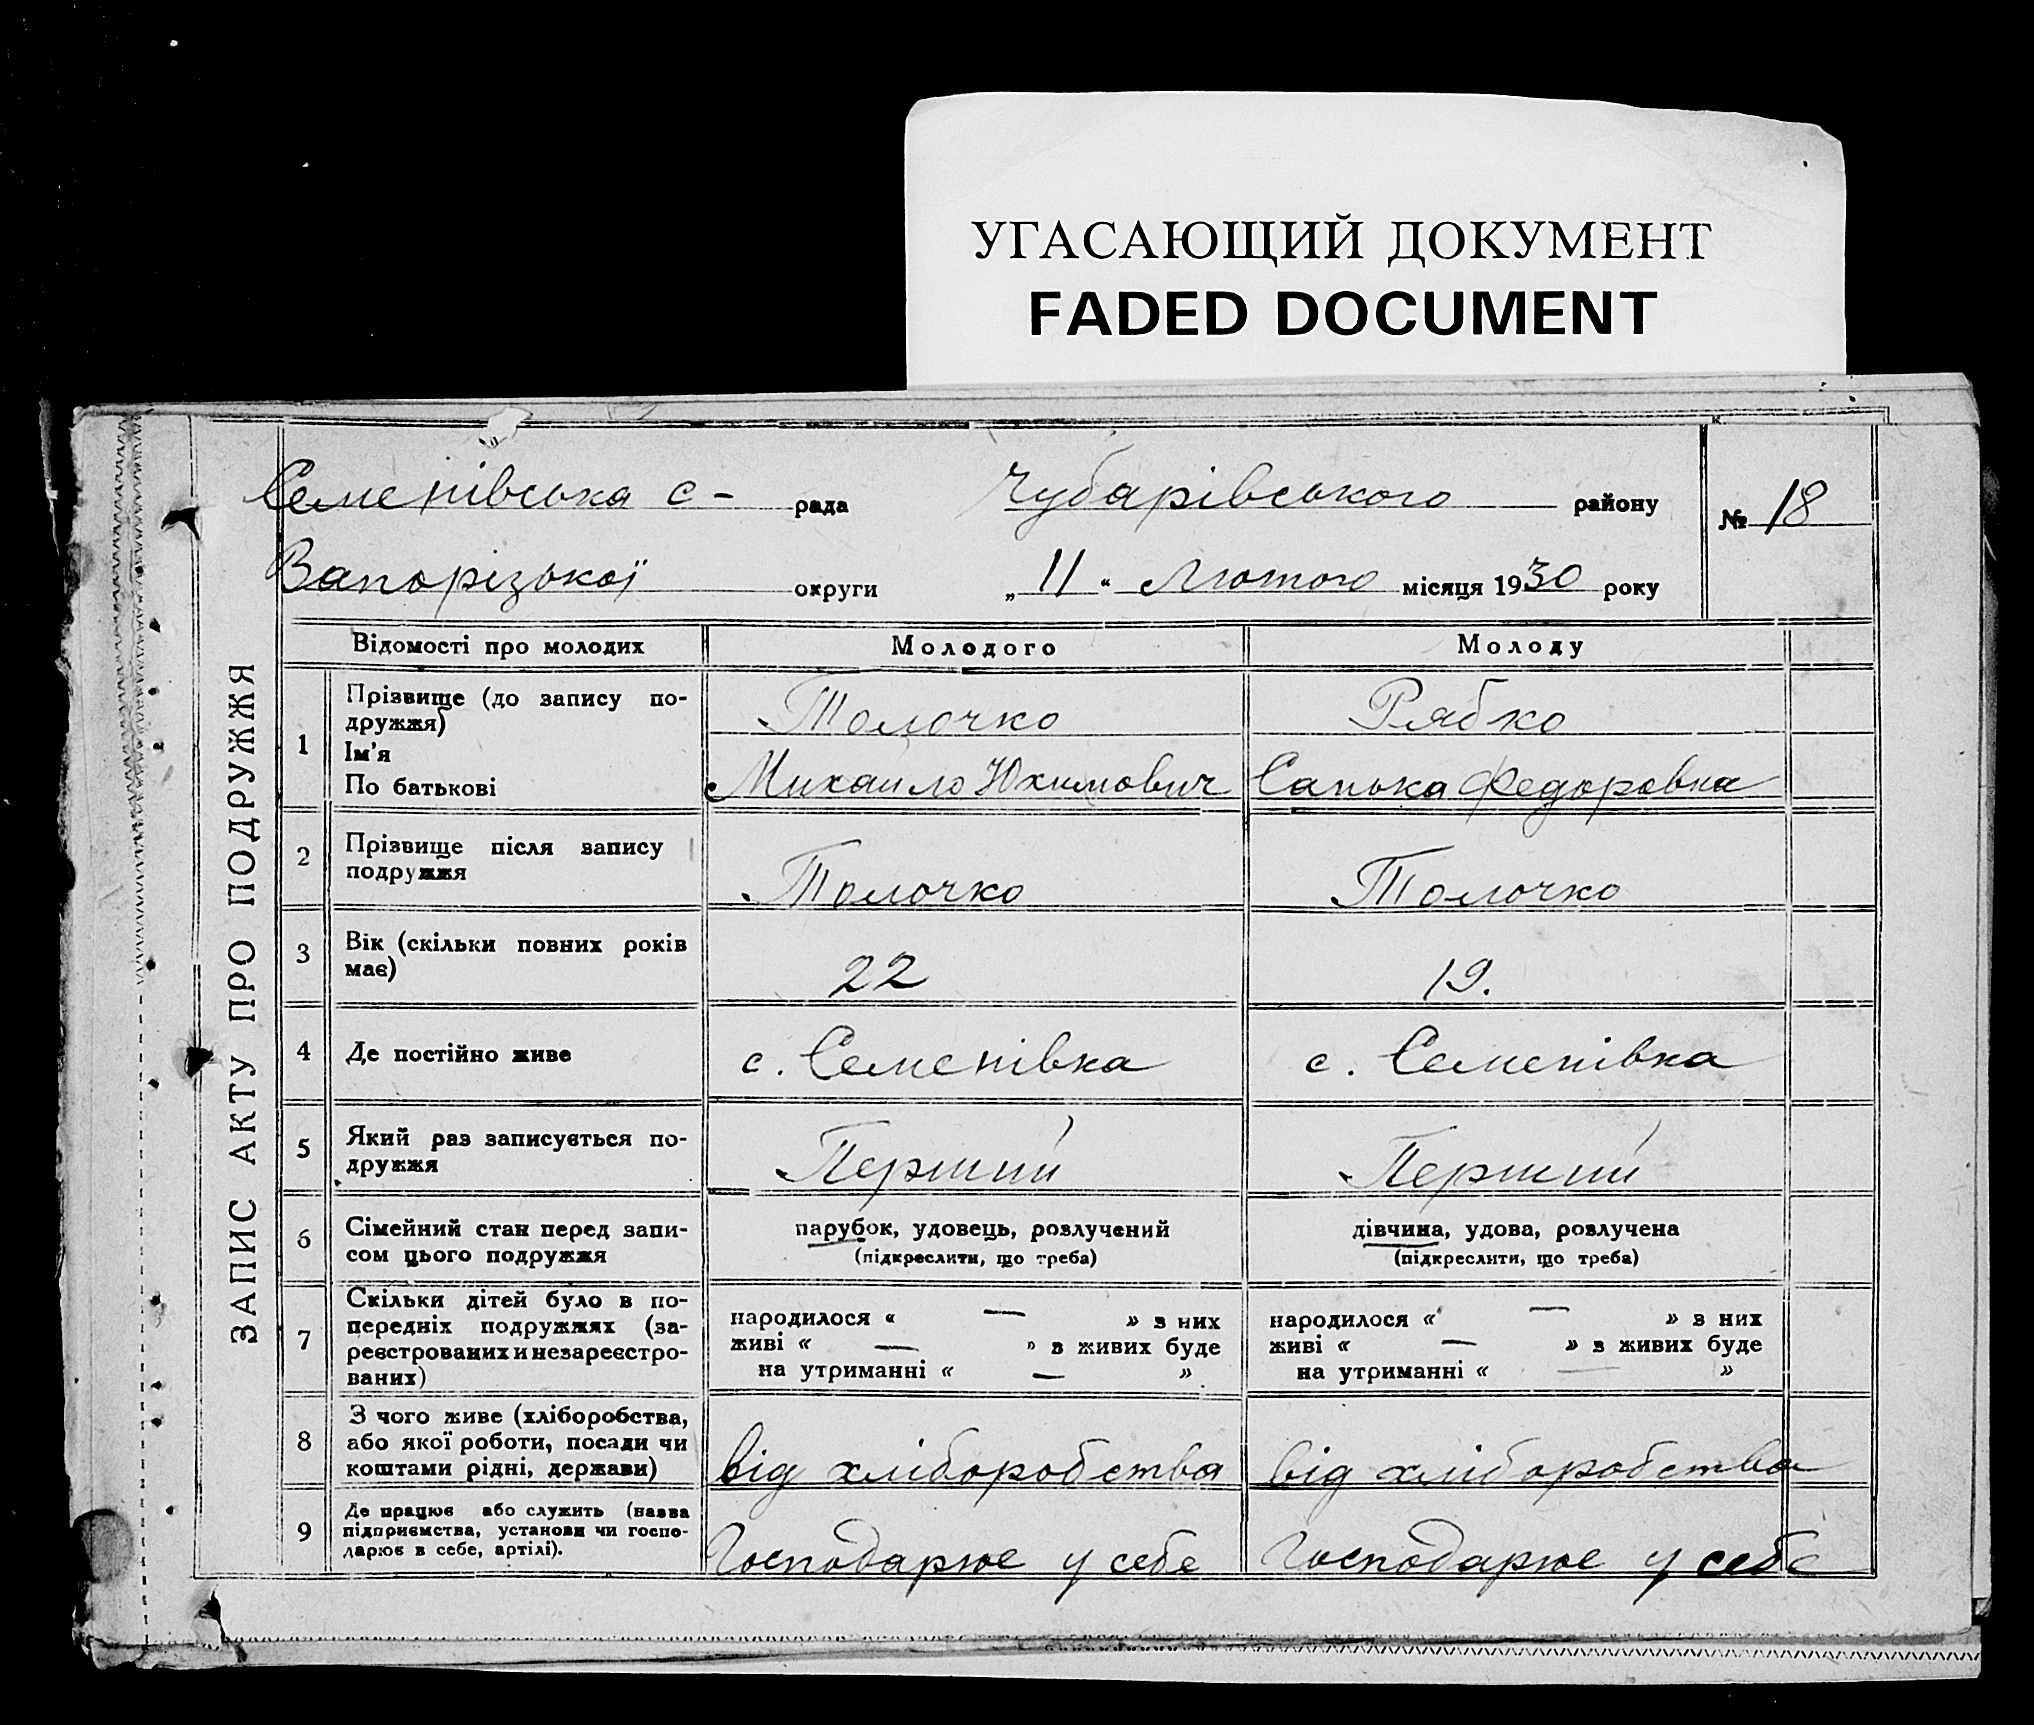 УГАСАЮЩИЙ ДОКУМЕНТ
FADED DOCUMENT
ЗАПИС АКТУ ПРО ПОДРУЖЖЯ
Семенівська с- рада Чубарівського району № 18
Запорізької округи „11“ Лютого місяця 1930 року
Відомості про молодих Молодого Молоду
1
Прізвище (до запису по-
дружжя) Толочко Рябко
Ім'я
По батькові Михайло Юхимович Санька Федоровна
2
Прізвище після запису
подружжя Толочко Толочко
3
Вік (скільки повних років
має) 22 19.
4 Де постійно живе с. Семенівка с. Семенівка
5
Який раз записується по-
дружжя Перший Перший
6
Сімейний стан перед запи-
сом цього подружжя
парубок, удовець, розлучений
(підкреслити, що треба)
дівчина, удова, розлучена
(підкреслити, що треба)
7
Скільки дітей було в по-
передніх подружжях (за-
реєстрованих и незареєстро-
ваних)
народилося « — » з них
живі « — » з живих буде
на утриманні « — »
народилося « — » з них
живі « — » з живих буде
на утриманні « — »
8
З чого живе (хліборобства,
або якої роботи, посади чи
коштами рідні, держави)
від хліборобства від хліборобства
9
Де працює або служить (назва
підприємства, установи чи госпо-
дарює в себе, артілі).
Господарює у себе Господарює у себе